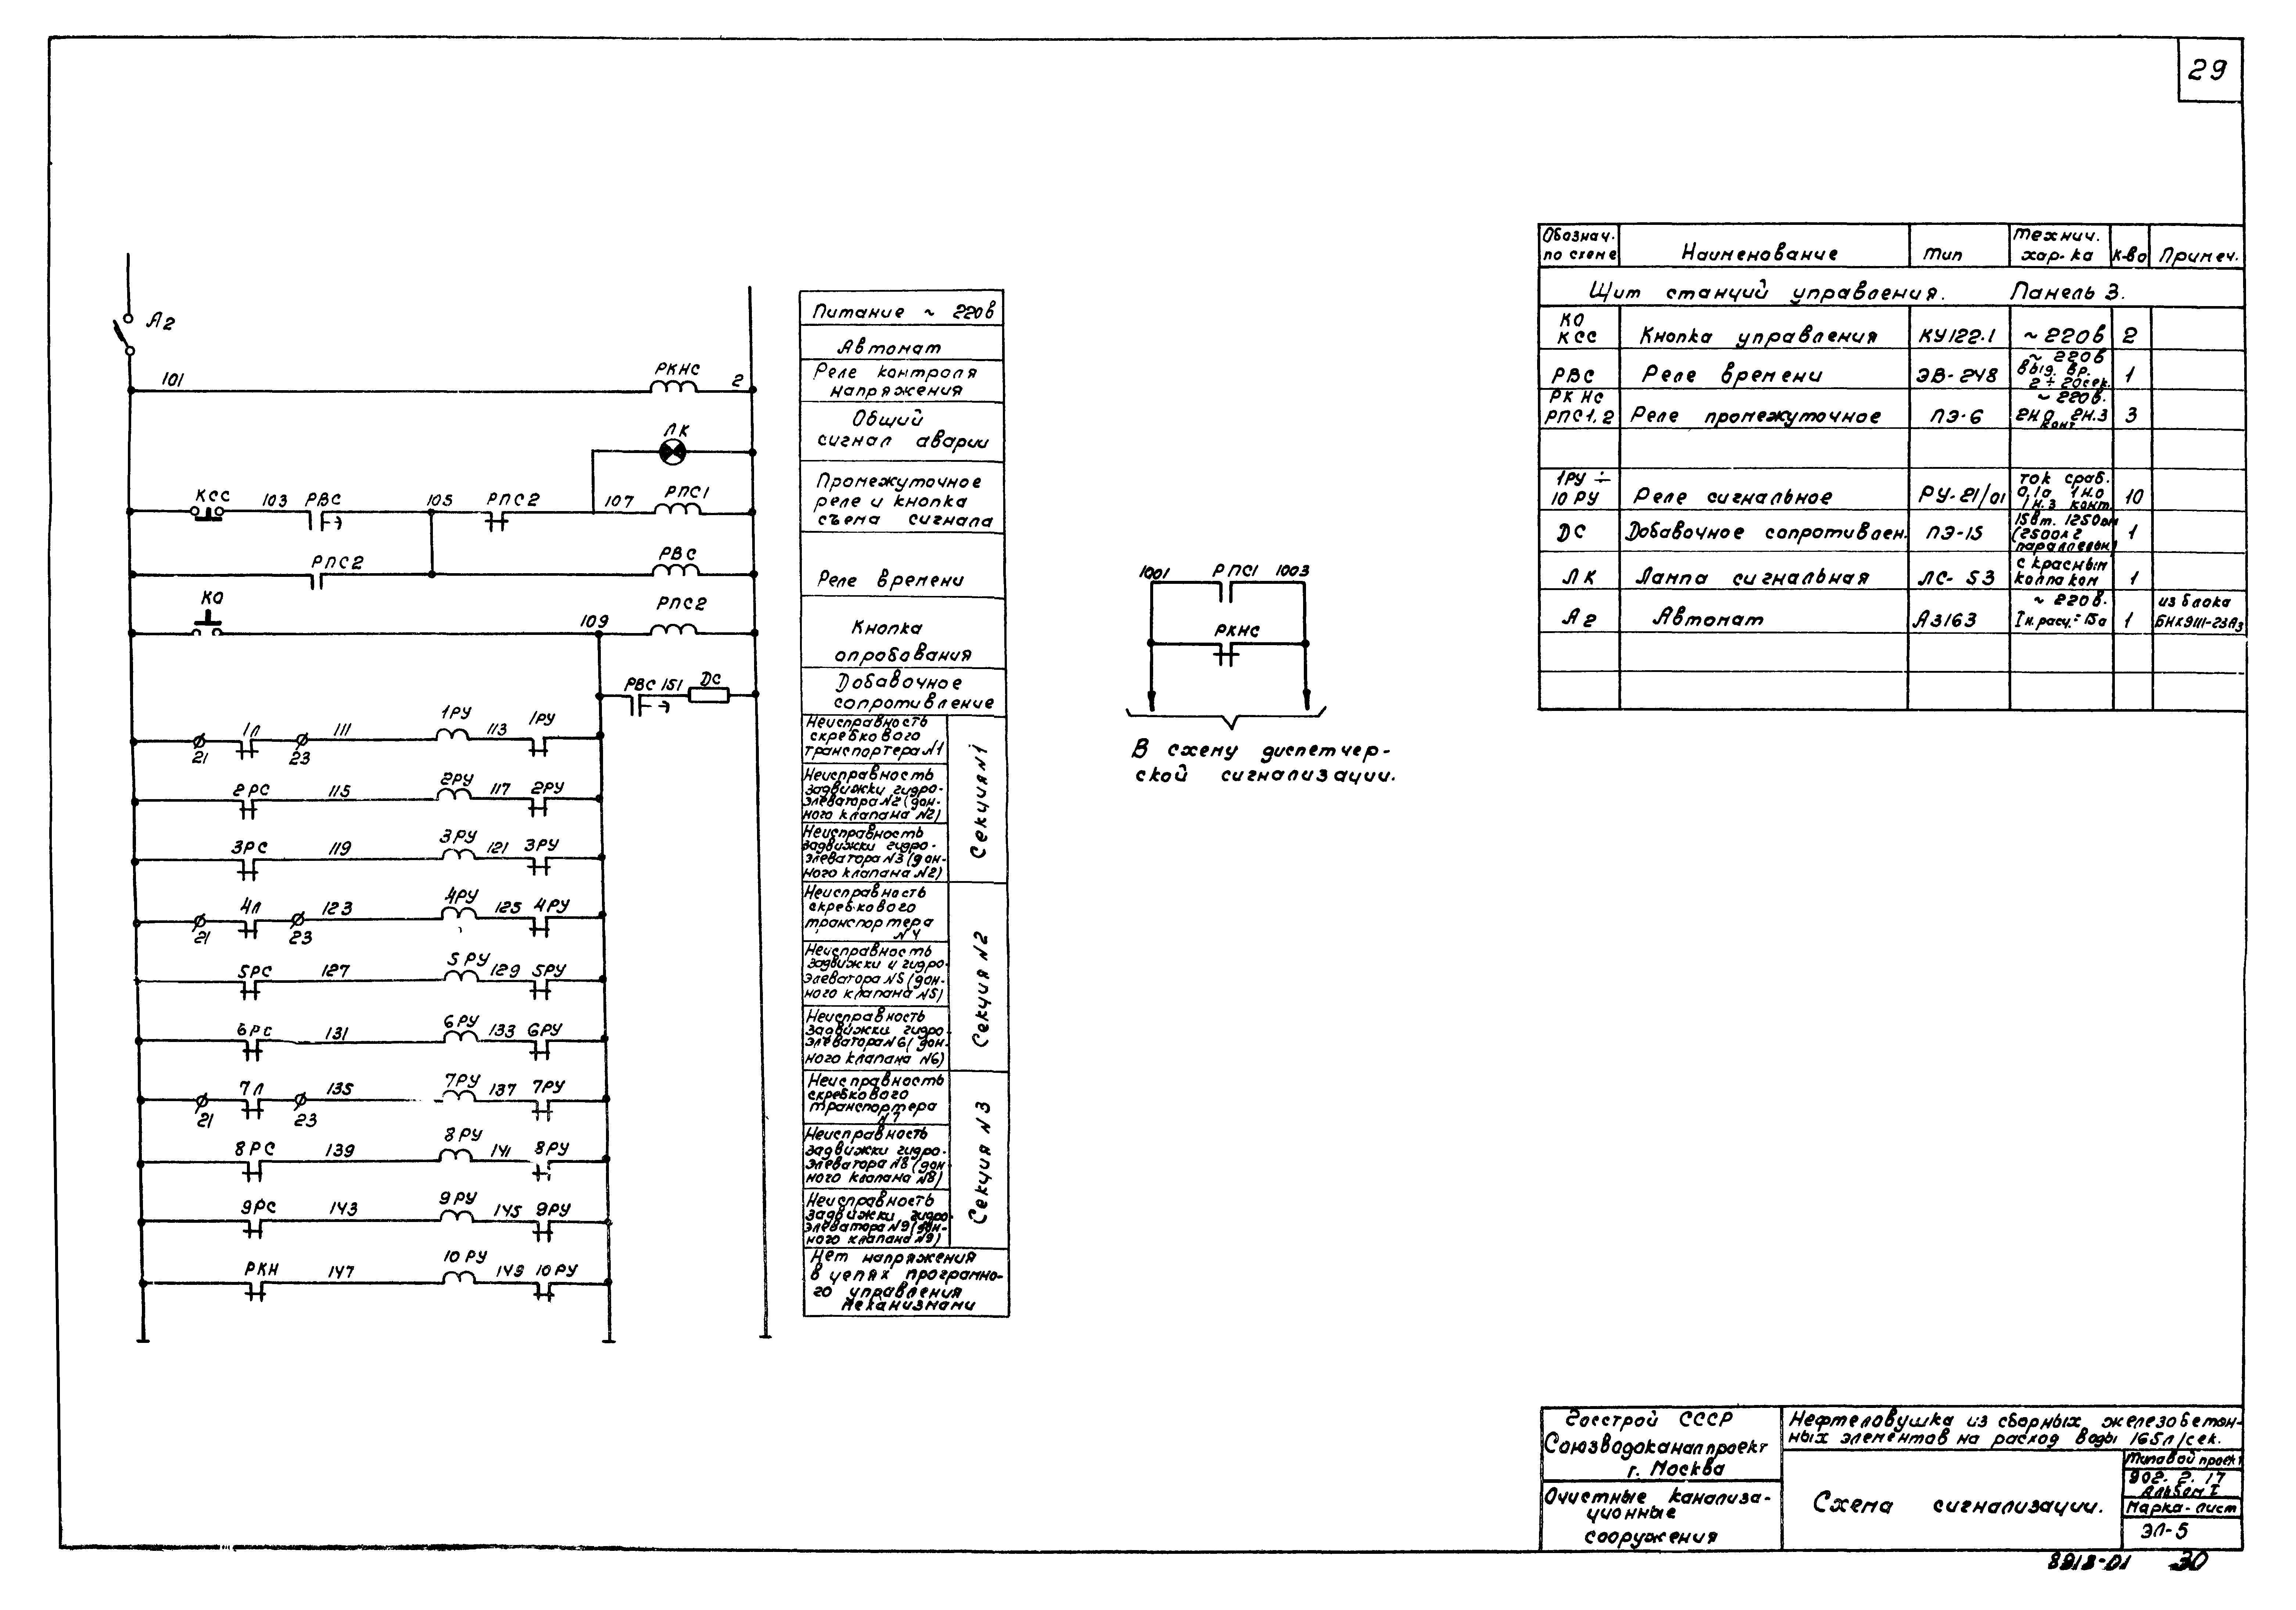 29
А2
101
РКНС
2
ЛК
КСС
103
РВС
105
РПС2
107
РПС1
РПС2
РВС
КО
109
РПС2
РВС 151
ДС
1Л
21
23
111
1РУ
113
1РУ
2РС
115
2РУ
117
2РУ
3РС
119
3РУ
121
3РУ
4Л
21
23
123
4РУ
125
4РУ
5РС
127
5РУ
129
5РУ
6РС
131
6РУ
133
6РУ
7Л
21
23
135
7РУ
137
7РУ
8РС
139
8РУ
141
8РУ
9РС
143
9РУ
145
9РУ
РКН
147
10РУ
149
10РУ
Питание ~ 220в
Автомат
Реле контроля
напряжения
Общий
сигнал аварии
Промежуточное
реле и кнопка
съема сигнала
Реле времени
Кнопка
опробования
Добавочное
сопротивление
Неисправность
скребкового
транспортера N1
Неисправность
задвижки гидро-
элеватора N2 (дон-
ного клапана N2)
Неисправность
задвижки гидро-
элеватора N3 (дон-
ного клапана N2)
Секция N1
Неисправность
скребкового
транспортера
N4
Неисправность
задвижки и гидро-
элеватора N5 (дон-
ного клапана N5)
Неисправность
задвижки гидро-
элеватора N6 (дон-
ного клапана N6)
Секция N2
Неисправность
скребкового
транспортера
N7
Неисправность
задвижки гидро-
элеватора N8 (дон-
ного клапана N8)
Неисправность
задвижки гидро-
элеватора N9 (дон-
ного клапана N9)
Секция N3
Нет напряжения
в цепях програмно-
го управления
механизмами
1001
РПС1
1003
РКНС
В схему диспетчер-
ской сигнализации.
Обознач.
по схеме
Наименование
Тип
Технич.
хар-ка
К-во
Примеч.
Щит станций управления. Панель 3.
КО
КСС
Кнопка управления
КУ122.1
~ 220в
2
РВС
Реле времени
ЭВ-248
~ 220в
выд. вр.
2÷20сек.
1
РКНС
РПС1,2
Реле промежуточное
ПЭ-6
~ 220в.
2н.о 2н.з
конт
3
1РУ ÷
10РУ
Реле сигнальное
РУ-21/01
ток сраб.
0,1а 1н.о
1н.з конт.
10
ДС
Добавочное сопротивлен.
ПЭ-15
15вт. 1250ом
(2500х2
параллельн)
1
ЛК
Лампа сигнальная
ЛС-53
с красным
колпаком
1
А2
Автомат
А3163
~ 220в.
Iн.расц.=15а
1
из блока
БНК9111-23А3
Госстрой СССР
Союзводоканалпроект
г. Москва
Очистные канализа-
ционные
сооружения
Нефтеловушка из сборных железобетон-
ных элементов на расход воды 165л/сек.
Схема сигнализации.
Типовой проект
902.2.17
Альбом I
Марка-лист
ЭЛ-5
8918-01
30